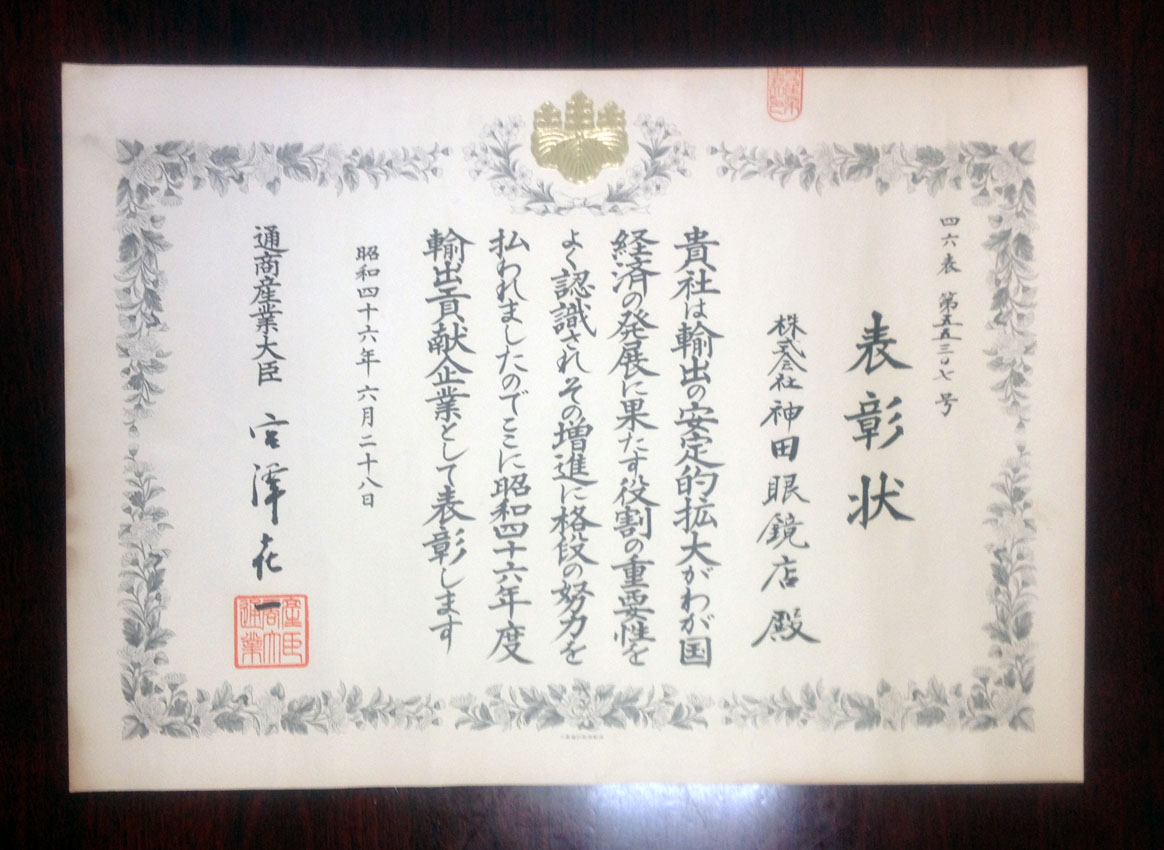 四六表 第五五三〇七号
表彰状
株式会社 神田眼鏡店殿
貴社は輸出の安定的拡大がわが国
経済の発展に果たす役割の重要性を
よく認識されその増進に格段の努力を
払われましたのでここに昭和四十六年度
輸出貢献企業として表彰します
昭和四十六年 六月二十八日
通商産業大臣 宮澤喜一
通商産業大臣